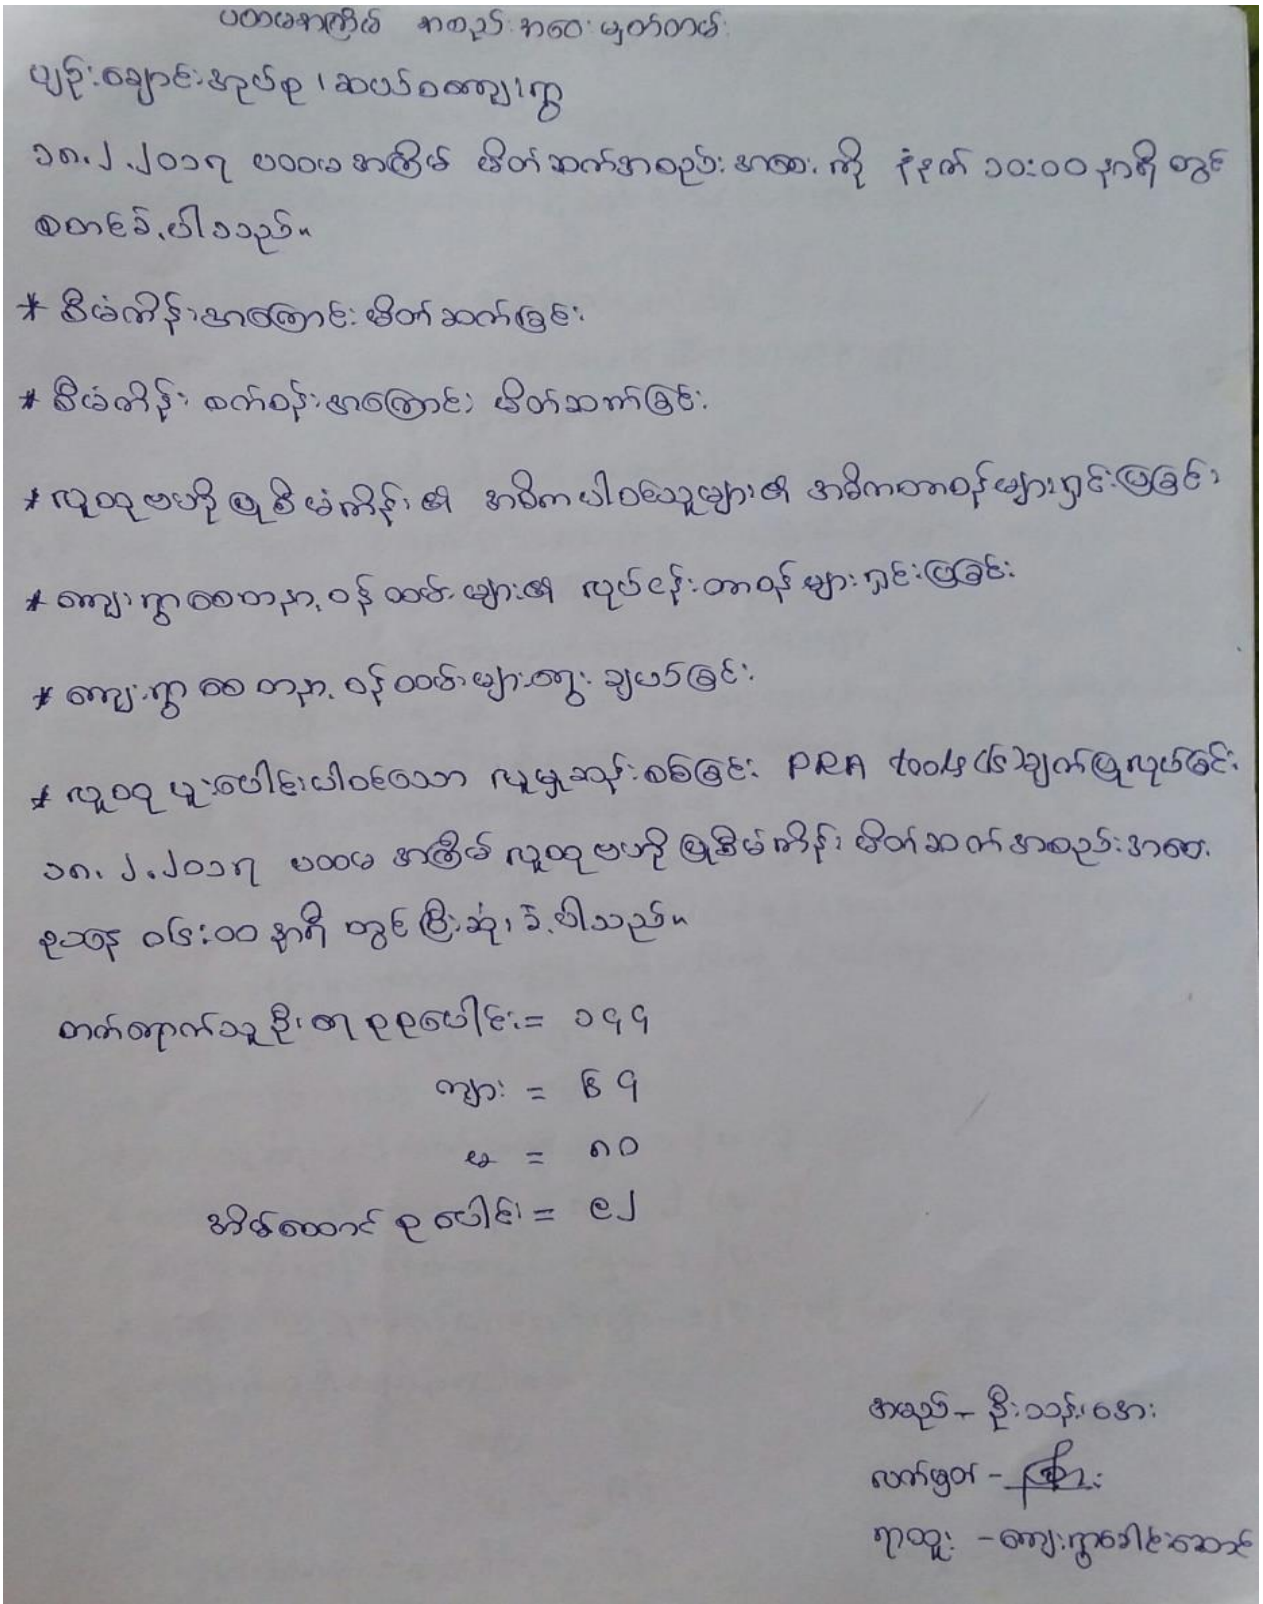 ပထမအကြိမ် အစည်းအဝေးမှတ်တမ်း
ပျဉ်းချောင်းအုပ်စု၊ ဆယ်စကျေးရွာ
၁၈.၂.၂၀၁၇ ပထမအကြိမ် မိတ်ဆက်အစည်းအဝေးကို နံနက် ၁၀:၀၀ နာရီတွင်
စတင်ခဲ့ပါသည်။
* စီမံကိန်းအကြောင်းမိတ်ဆက်ခြင်း
* စီမံကိန်း စက်ဝန်းအကြောင်း မိတ်ဆက်ခြင်း
* လူထုဗဟိုပြုစီမံကိန်း၏ အဓိကပါဝင်သူများ၏ အဓိကတာဝန်များရှင်းပြခြင်း
* ကျေးရွာစေတနာ့ဝန်ထမ်းများ၏ လုပ်ငန်းတာဝန်များရှင်းပြခြင်း
* ကျေးရွာစေတနာ့ဝန်ထမ်းများရွေးချယ်ခြင်း
* လူထုပူးပေါင်းပါဝင်သော လူမှုဆန်းစစ်ခြင်း PRA tools (၆)ချက်ပြုလုပ်ခြင်း
၁၈.၂.၂၀၁၇ ပထမအကြိမ် လူထုဗဟိုပြုစီမံကိန်း မိတ်ဆက်အစည်းအဝေး
ညနေ ၀၄:၀၀ နာရီတွင် ပြီးဆုံးခဲ့ပါသည်။
တက်ရောက်သူဦးရေ စုစုပေါင်း = ၁၄၄
ကျား = ၆၄
မ = ၈၀
အိမ်ထောင်စုပေါင်း = ၉၂
အမည် - ဦးသန်းအေး
လက်မှတ် -
ရာထူး - ကျေးရွာခေါင်းဆောင်